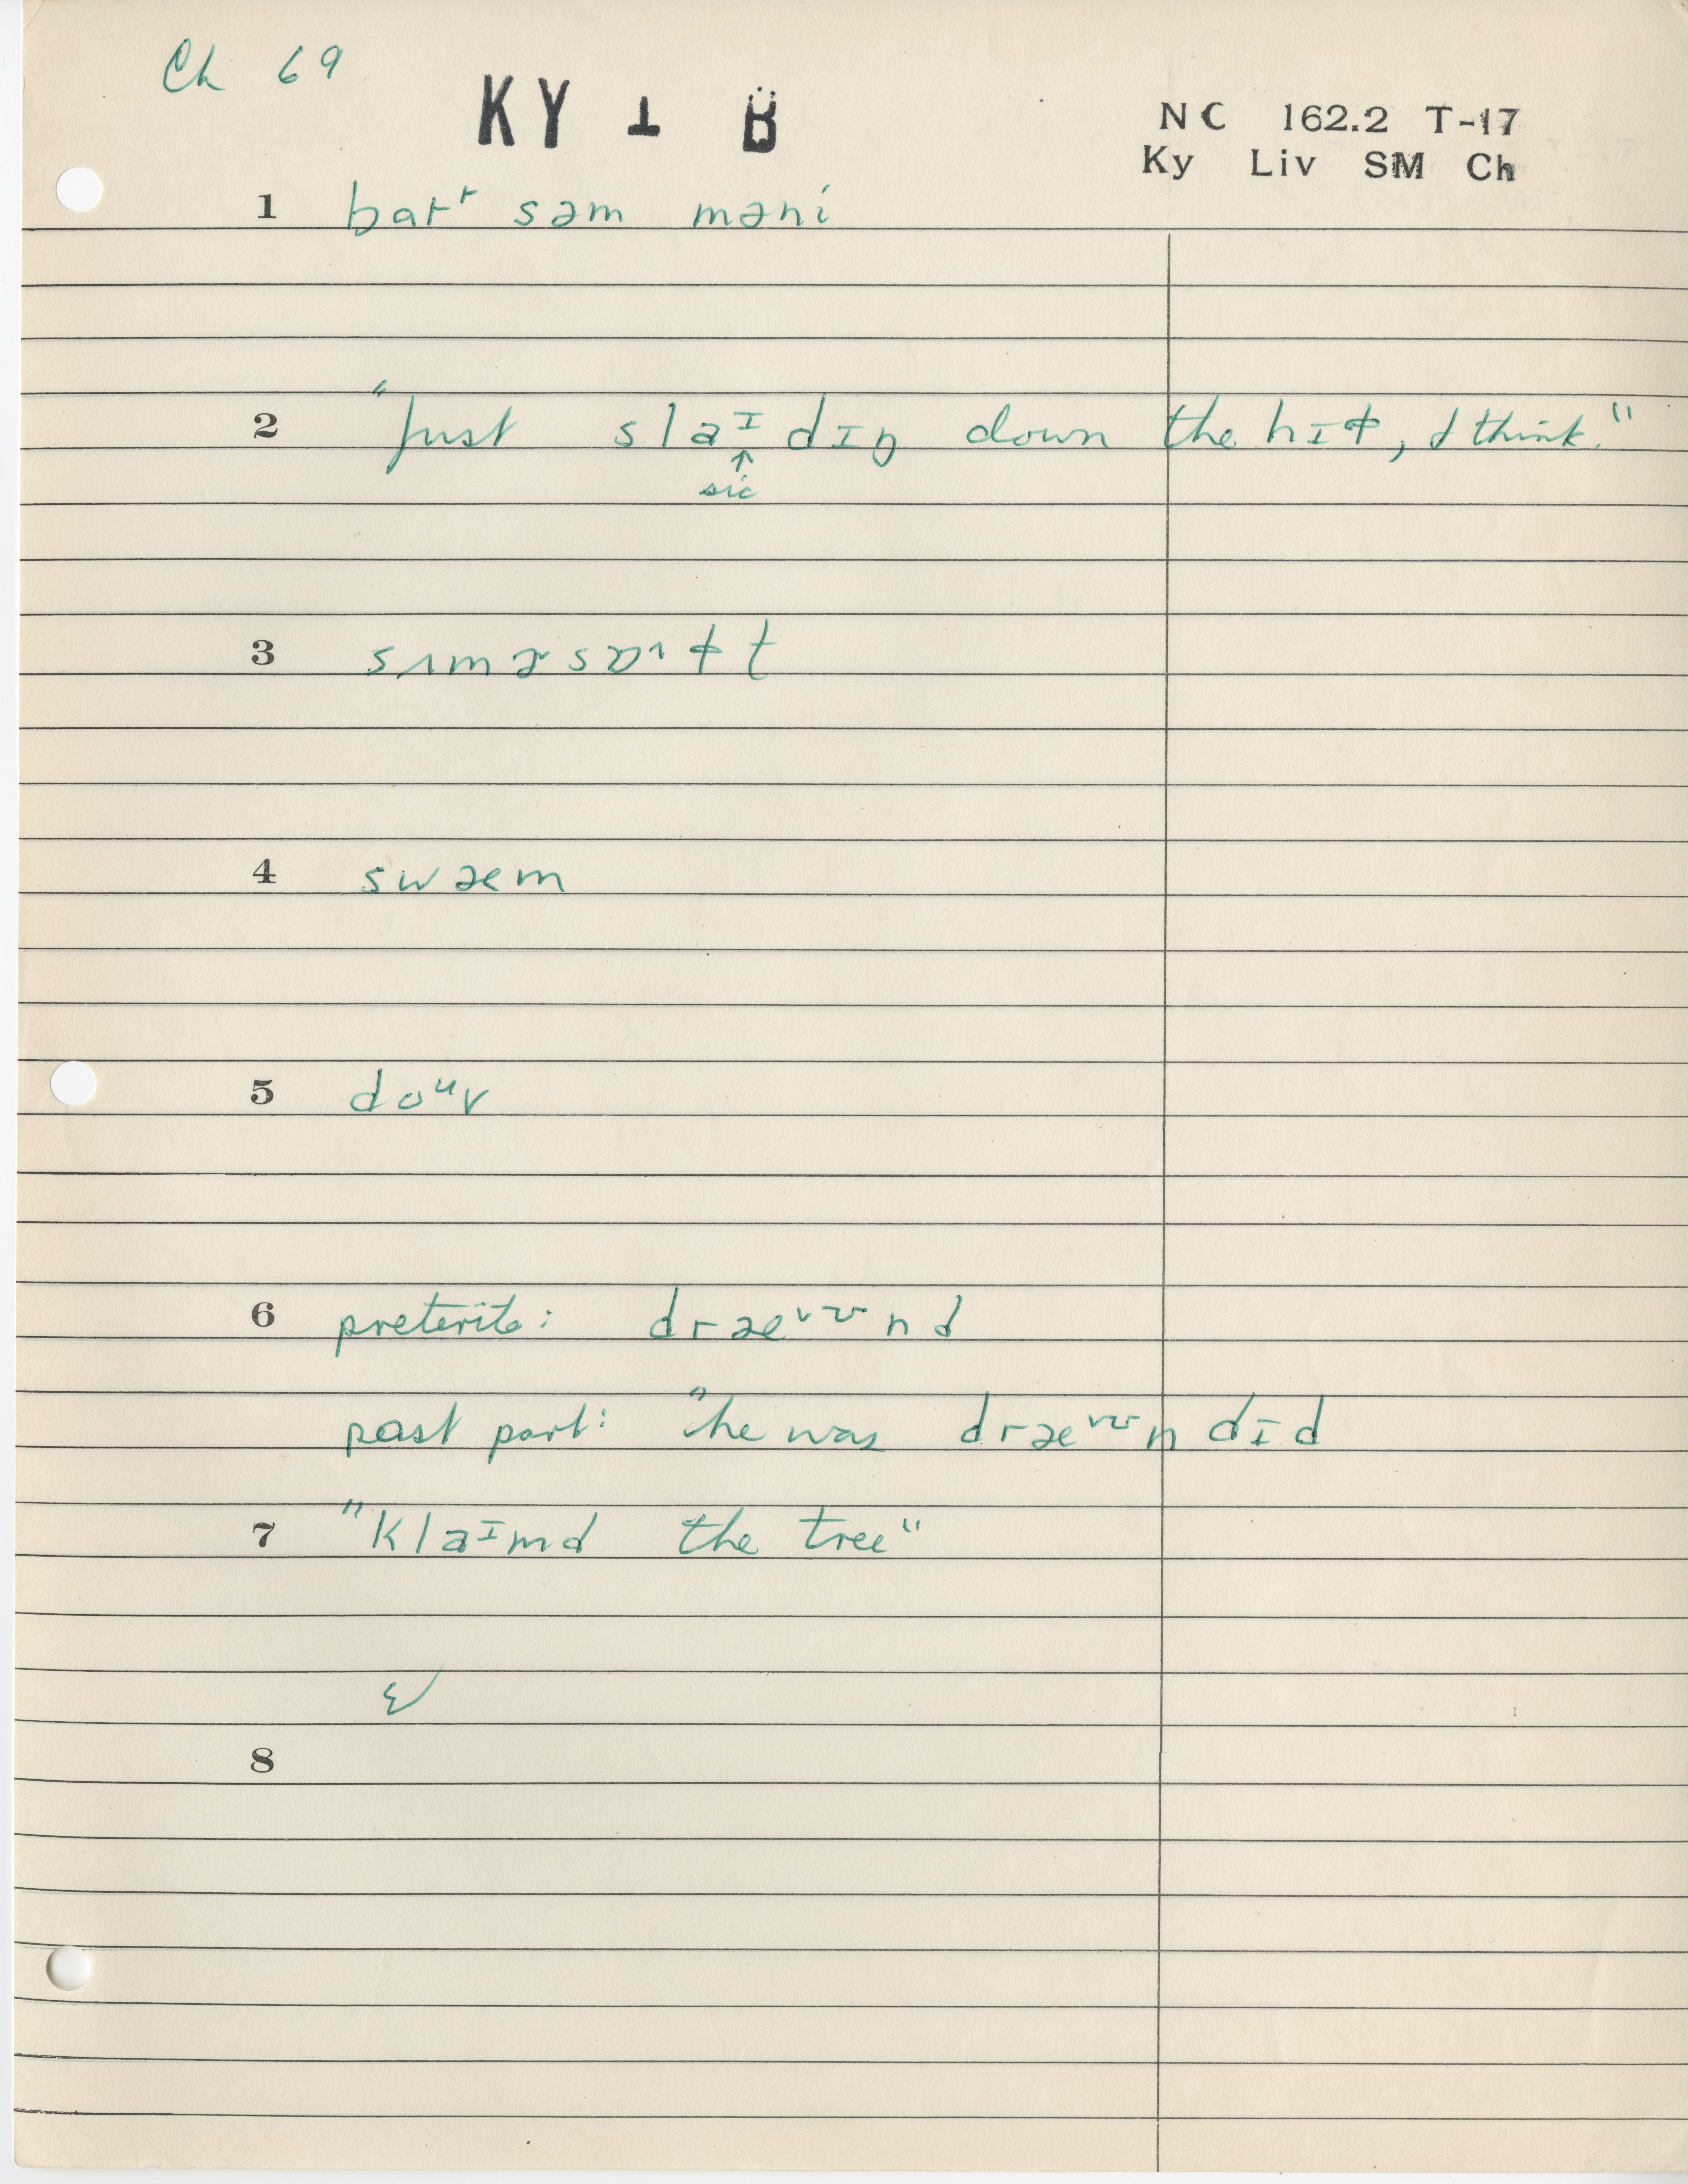 Ch 69
KY 1 B
NC 162.2 T-17
Ky Liv SM Ch
1 baɚ səm məni
2 "Just slaᶦdɪŋ down the hɪɫ, I think."
↑
sic
3
4 swæm
5 doᵘv
6 preterite: dræᵛᶷnd
past part: "he was dræᵛᶷndɪd
7 "klaᶦmd the tree"
8